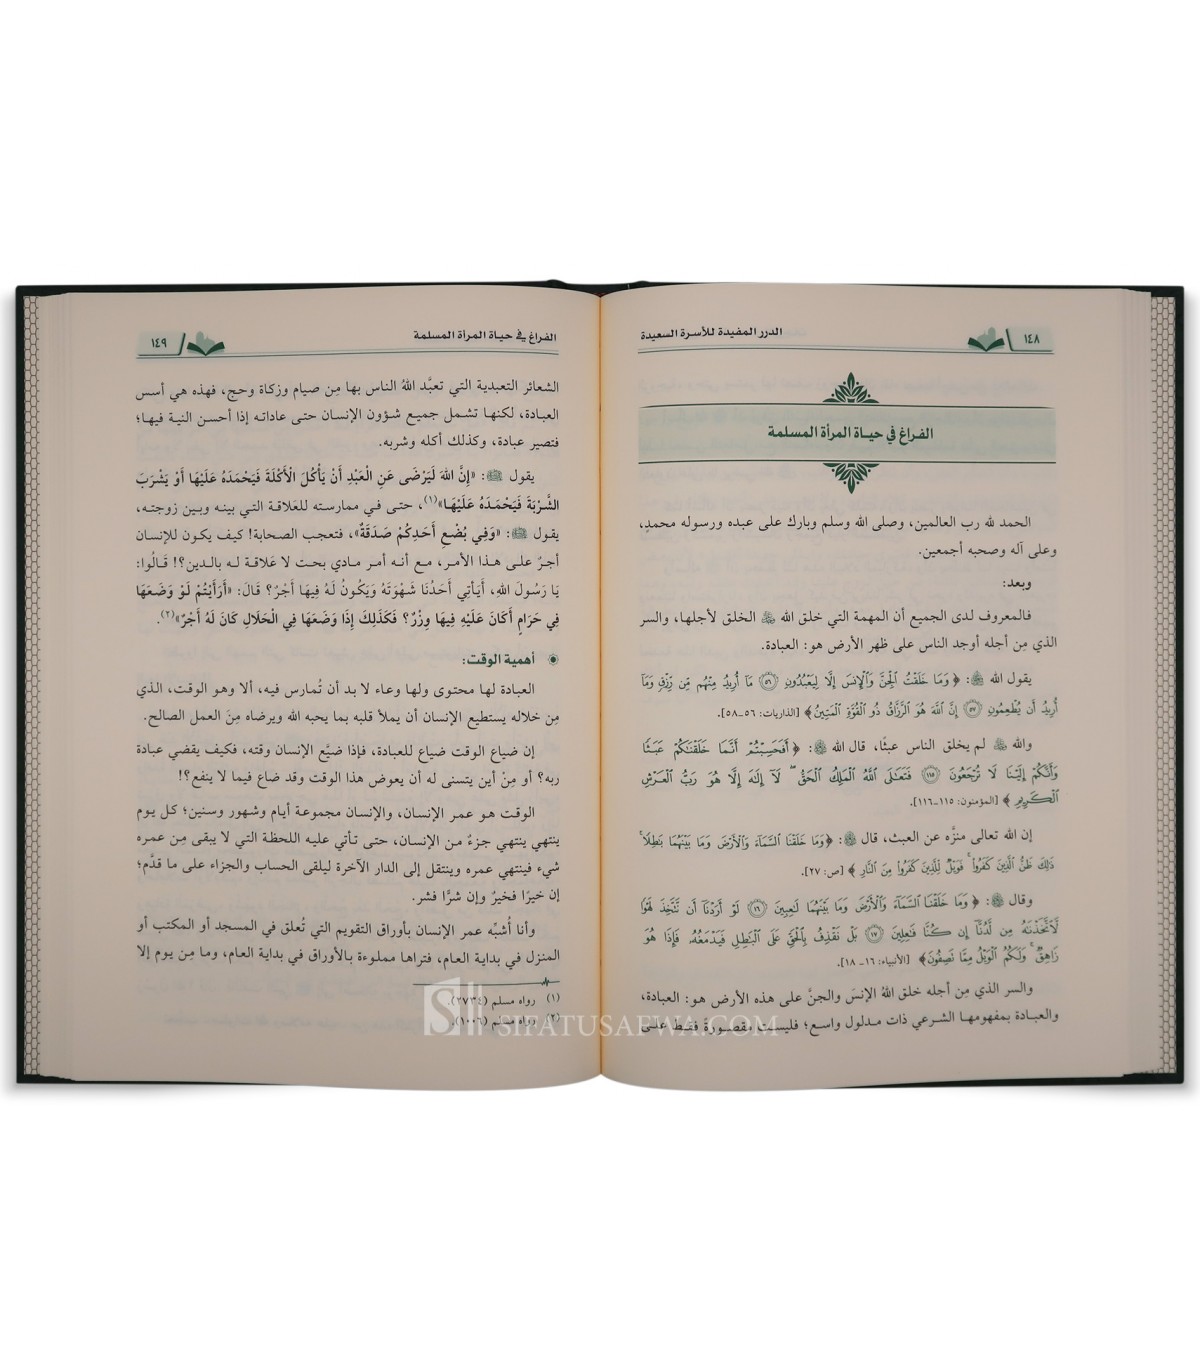 ١٤٨
الدرر المفيدة للأسرة السعيدة
الفراغ في حياة المرأة المسلمة
الحمد لله رب العالمين، وصلى الله وسلم وبارك على عبده ورسوله محمدٍ،
وعلى آله وصحبه أجمعين.
وبعد:
فالمعروف لدى الجميع أن المهمة التي خلق الله ﷻ الخلق لأجلها، والسر
الذي مِن أجله أوجد الناس على ظهر الأرض هو: العبادة.
يقول الله ﷻ: ﴿وَمَا خَلَقْتُ ٱلْجِنَّ وَٱلْإِنسَ إِلَّا لِيَعْبُدُونِ ۝٥٦ مَآ أُرِيدُ مِنْهُم مِّن رِّزْقٍ وَمَآ
أُرِيدُ أَن يُطْعِمُونِ ۝٥٧ إِنَّ ٱللَّهَ هُوَ ٱلرَّزَّاقُ ذُو ٱلْقُوَّةِ ٱلْمَتِينُ﴾ [الذاريات: ٥٦-٥٨].
والله ﷻ لم يخلق الناس عبثًا، قال الله ﷻ: ﴿أَفَحَسِبْتُمْ أَنَّمَا خَلَقْنَٰكُمْ عَبَثًا
وَأَنَّكُمْ إِلَيْنَا لَا تُرْجَعُونَ ۝١١٥ فَتَعَٰلَى ٱللَّهُ ٱلْمَلِكُ ٱلْحَقُّ ۖ لَآ إِلَٰهَ إِلَّا هُوَ رَبُّ ٱلْعَرْشِ
ٱلْكَرِيمِ﴾ [المؤمنون: ١١٥-١١٦].
إن الله تعالى منزَّه عن العبث، قال ﷻ: ﴿وَمَا خَلَقْنَا ٱلسَّمَآءَ وَٱلْأَرْضَ وَمَا بَيْنَهُمَا بَٰطِلًا ۚ
ذَٰلِكَ ظَنُّ ٱلَّذِينَ كَفَرُوا۟ ۚ فَوَيْلٌ لِّلَّذِينَ كَفَرُوا۟ مِنَ ٱلنَّارِ﴾ [ص: ٢٧].
وقال ﷻ: ﴿وَمَا خَلَقْنَا ٱلسَّمَآءَ وَٱلْأَرْضَ وَمَا بَيْنَهُمَا لَٰعِبِينَ ۝١٦ لَوْ أَرَدْنَآ أَن نَّتَّخِذَ لَهْوًا
لَّٱتَّخَذْنَٰهُ مِن لَّدُنَّآ إِن كُنَّا فَٰعِلِينَ ۝١٧ بَلْ نَقْذِفُ بِٱلْحَقِّ عَلَى ٱلْبَٰطِلِ فَيَدْمَغُهُۥ فَإِذَا هُوَ
زَاهِقٌ ۚ وَلَكُمُ ٱلْوَيْلُ مِمَّا تَصِفُونَ﴾ [الأنبياء: ١٦-١٨].
والسر الذي مِن أجله خلق اللهُ الإنسَ والجنَّ على هذه الأرض هو: العبادة،
والعبادة بمفهومها الشرعي ذات مدلول واسع؛ فليست مقصورةً فقط على
الفراغ في حياة المرأة المسلمة
١٤٩
الشعائر التعبدية التي تعبَّد اللهُ الناس بها مِن صيام وزكاة وحج، فهذه هي أسس
العبادة، لكنها تشمل جميع شؤون الإنسان حتى عاداته إذا أحسن النية فيها؛
فتصير عبادة، وكذلك أكله وشربه.
يقول ﷺ: «إِنَّ اللهَ لَيَرْضَى عَنِ الْعَبْدِ أَنْ يَأْكُلَ الْأَكْلَةَ فَيَحْمَدَهُ عَلَيْهَا أَوْ يَشْرَبَ
الشَّرْبَةَ فَيَحْمَدَهُ عَلَيْهَا»(١)، حتى في ممارسته للعَلاقة التي بينه وبين زوجته،
يقول ﷺ: «وَفِي بُضْعِ أَحَدِكُمْ صَدَقَةٌ»، فتعجب الصحابة! كيف يكون للإنسان
أجرٌ على هذا الأمر، مع أنه أمر مادي بحت لا عَلاقة له بالدين؟! قَالُوا:
يَا رَسُولَ اللهِ، أَيَأْتِي أَحَدُنَا شَهْوَتَهُ وَيَكُونُ لَهُ فِيهَا أَجْرٌ؟ قَالَ: «أَرَأَيْتُمْ لَوْ وَضَعَهَا
فِي حَرَامٍ أَكَانَ عَلَيْهِ فِيهَا وِزْرٌ؟ فَكَذَلِكَ إِذَا وَضَعَهَا فِي الْحَلَالِ كَانَ لَهُ أَجْرٌ»(٢).
أهمية الوقت:
العبادة لها محتوى ولها وعاء لا بد أن تُمارس فيه، ألا وهو الوقت، الذي
مِن خلاله يستطيع الإنسان أن يملأ قلبه بما يحبه الله ويرضاه مِنَ العمل الصالح.
إن ضياع الوقت ضياع للعبادة، فإذا ضيَّع الإنسان وقته، فكيف يقضي عبادة
ربه؟ أو مِنْ أين يتسنى له أن يعوض هذا الوقت وقد ضاع فيما لا ينفع؟!
الوقت هو عمر الإنسان، والإنسان مجموعة أيام وشهور وسنين؛ كل يوم
ينتهي ينتهي جزءٌ من الإنسان، حتى تأتي عليه اللحظة التي لا يبقى مِن عمره
شيء فينتهي عمره وينتقل إلى الدار الآخرة ليلقى الحساب والجزاء على ما قدَّم؛
إن خيرًا فخيرٌ وإن شرًّا فشر.
وأنا أُشبِّه عمر الإنسان بأوراق التقويم التي تُعلق في المسجد أو المكتب أو
المنزل في بداية العام، فتراها مملوءة بالأوراق في بداية العام، وما مِن يوم إلا
(١) رواه مسلم (٢٧٣٤).
(٢) رواه مسلم (١٠٠٦).
SIFATUSAFWA.COM